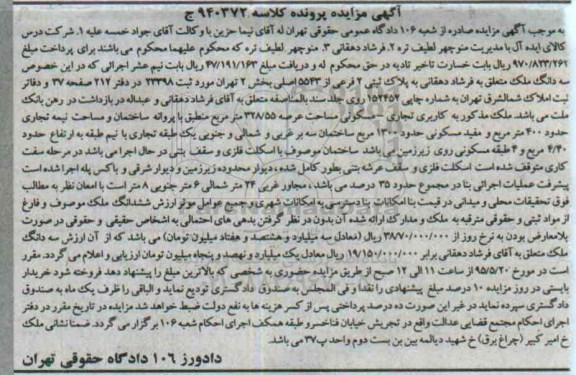 آگهی مزایده پرونده کلاسه ۹۴۰۳۷۲ ج
به موجب آگهی مزایده صادره از شعبه ۱۰۶ دادگاه عمومی حقوقی تهران له آقای نیما حزین با وکالت آقای جواد خمسه علیه ۱. شرکت درس
کالای ایده آل با مدیریت منوچهر لطیف تره ۲. فرشاد دهقانی ۳. منوچهر لطیف تره که محکوم علیهما محکوم می باشند برای پرداخت مبلغ
۹۷۰/۸۳۳/۲۶۲ ریال بابت خسارت تاخیر تادیه در حق محکوم له و دریافت مبلغ ۴۷/۱۹۱/۱۶۳ ریال بابت نیم عشر اجرائی که در این خصوص
سه دانگ ملک متعلق به فرشاد دهقانی به پلاک ثبتی ۲ فرعی از ۵۵۴۳ اصلی بخش ۲ تهران مورد ثبت ۳۳۳۹۸ در دفتر ۲۱۷ صفحه ۳۷ و دفاتر
ثبت املاک شمالشرق تهران به شماره چاپی ۱۵۲۴۵۷ روی جلد سند بالمناصفه متعلق به آقای فرشاد دهقانی و عبداله در بازداشت در رهن بانک
ملت می باشد. ملک مذکور به کاربری تجاری - مسکونی مساحت عرصه ۳۲۸/۵۵ متر مربع منطبق با پروانه ساختمان و مساحت نیمه تجاری
حدود ۴۰۰ متر مربع و مفید مسکونی حدود ۱۳۰۰ مربع ساختمان سه بر غربی و شمالی و جنوبی یک طبقه تجاری با نیم طبقه به ارتفاع حدود
۴/۴۰ مربع و ۴ طبقه مسکونی روی زیرزمین می باشد ساختمان موصوف با اسکلت فلزی و سقف بتنی در حال اجرا می باشد در مرحله سفت
کاری متوقف شده است اسکلت فلزی و سقف عرشه بتنی بطور کامل شده، دیوار محدوده زیرزمین و دیوار شرقی و باکس پله اجرا شده است
پیشرفت عملیات اجرائی بنا در مجموع حدود ۳۵ درصد می باشد، مجاور غربی ۲۴ متر شمالی ۶ متر جنوبی ۸ متر است با امعان نظر به مطالب
فوق تحقیقات محلی و میدانی در قیمت بنا امکانات بنا دسترسی به امکانات شهری و جمیع عوامل موثر ارزش ششدانگ ملک موصوف و فارغ
از مواد ثبتی و حقوقی مترقبه به ملک و مدارک ارائه شده آن بدون در نظر گرفتن بدهی های احتمالی به اشخاص حقیقی و حقوقی در صورت
بلامعارض بودن به نرخ روز از ۳۸/۷۰۰/۰۰۰/۰۰۰ ریال (معادل سه میلیارد و هشتصد و هفتاد میلیون تومان) می باشد که از آن ارزش سه دانگ
ملک متعلق به آقای فرشاد دهقانی برابر ۱۹/۱۵۰/۰۰۰/۰۰۰ ریال معادل یک میلیارد و نهصد و پنجاه میلیون تومان ارزیابی و اعلام می گردد. مقرر
است در مورخ ۹۵/۵/۲۰ از ساعت ۱۱ الی ۱۲ صبح از طریق مزایده حضوری به شخصی که بالاترین مبلغ را پیشنهاد دهد فروخته شود خریدار
بایستی در روز مزایده ۱۰ درصد مبلغ پیشنهادی را نقدا و فی المجلس به صندوق دادگستری تودیع نماید و الباقی را ظرف یک ماه به صندوق
دادگستری سپرده نماید در غیر این صورت ده درصد پرداختی پس از کسر هزینه ها به نفع دولت ضبط خواهد شد مزایده در تاریخ مقرر در دفتر
اجرای احکام مجتمع قضایی عدالت واقع در تجریش خیابان فناخسرو طبقه همکف اجرای احکام شعبه ۱۰۶ برگزار می گردد. ضمنا نشانی ملک
خ امیر کبیر (چراغ برق) خ شهید دیالمه بین بن بست دوم واحد پ ۳۷ می باشد.
دادورز ۱۰۶ دادگاه حقوقی تهران